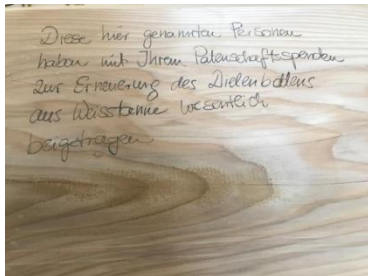 Diese hier genannten Personen
haben mit Ihren Patenschaftsspenden
zur Erneuerung des Dielenbodens
aus Weisstanne wesentlich
beigetragen